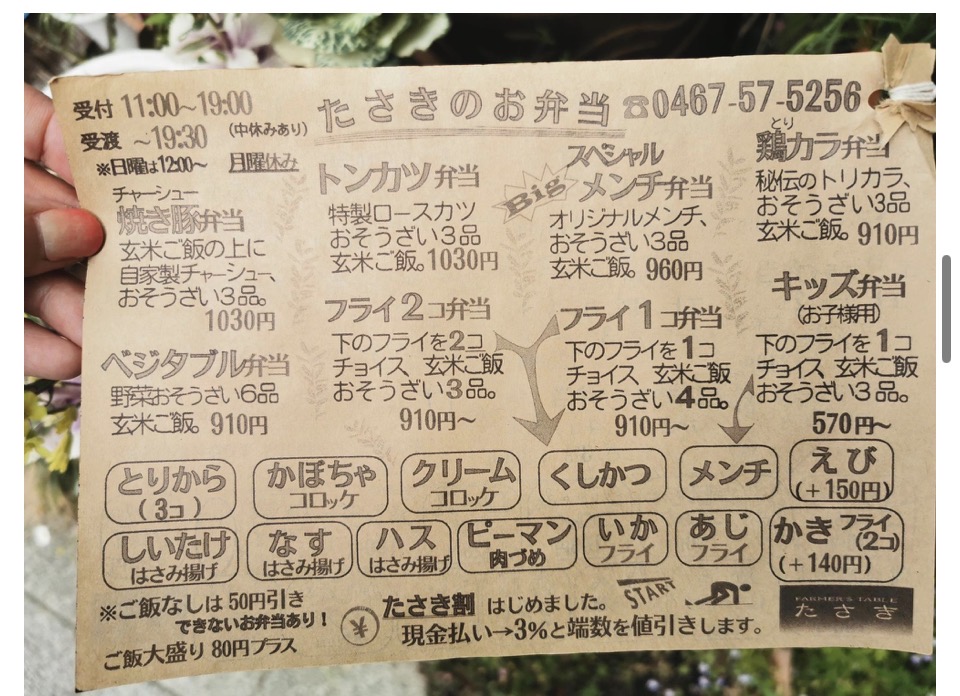 受付 11:00〜19:00
受渡 〜19:30 (中休みあり)
※日曜は12:00〜 月曜休み
たさきのお弁当 ☎0467-57-5256
チャーシュー
焼き豚弁当
玄米ご飯の上に
自家製チャーシュー、
おそうざい3品。
1030円
トンカツ弁当
特製ロースカツ
おそうざい3品
玄米ご飯。1030円
Big
スペシャル
メンチ弁当
オリジナルメンチ、
おそうざい3品
玄米ご飯。960円
とり
鶏カラ弁当
秘伝のトリカラ、
おそうざい3品
玄米ご飯。910円
ベジタブル弁当
野菜おそうざい6品
玄米ご飯。910円
フライ2コ弁当
下のフライを2コ
チョイス 玄米ご飯
おそうざい3品。
910円〜
フライ1コ弁当
下のフライを1コ
チョイス 玄米ご飯
おそうざい4品。
910円〜
キッズ弁当
(お子様用)
下のフライを1コ
チョイス、玄米ご飯
おそうざい3品。
570円〜
とりから
(3コ)
かぼちゃ
コロッケ
クリーム
コロッケ
くしかつ
メンチ
えび
(+150円)
しいたけ
はさみ揚げ
なす
はさみ揚げ
ハス
はさみ揚げ
ピーマン
肉づめ
いか
フライ
あじ
フライ
かきフライ
(2コ)
(+140円)
※ご飯なしは50円引き
できないお弁当あり!
ご飯大盛り80円プラス
¥
たさき割 はじめました。
START
現金払い→3%と端数を値引きします。
FARMER'S TABLE
たさき